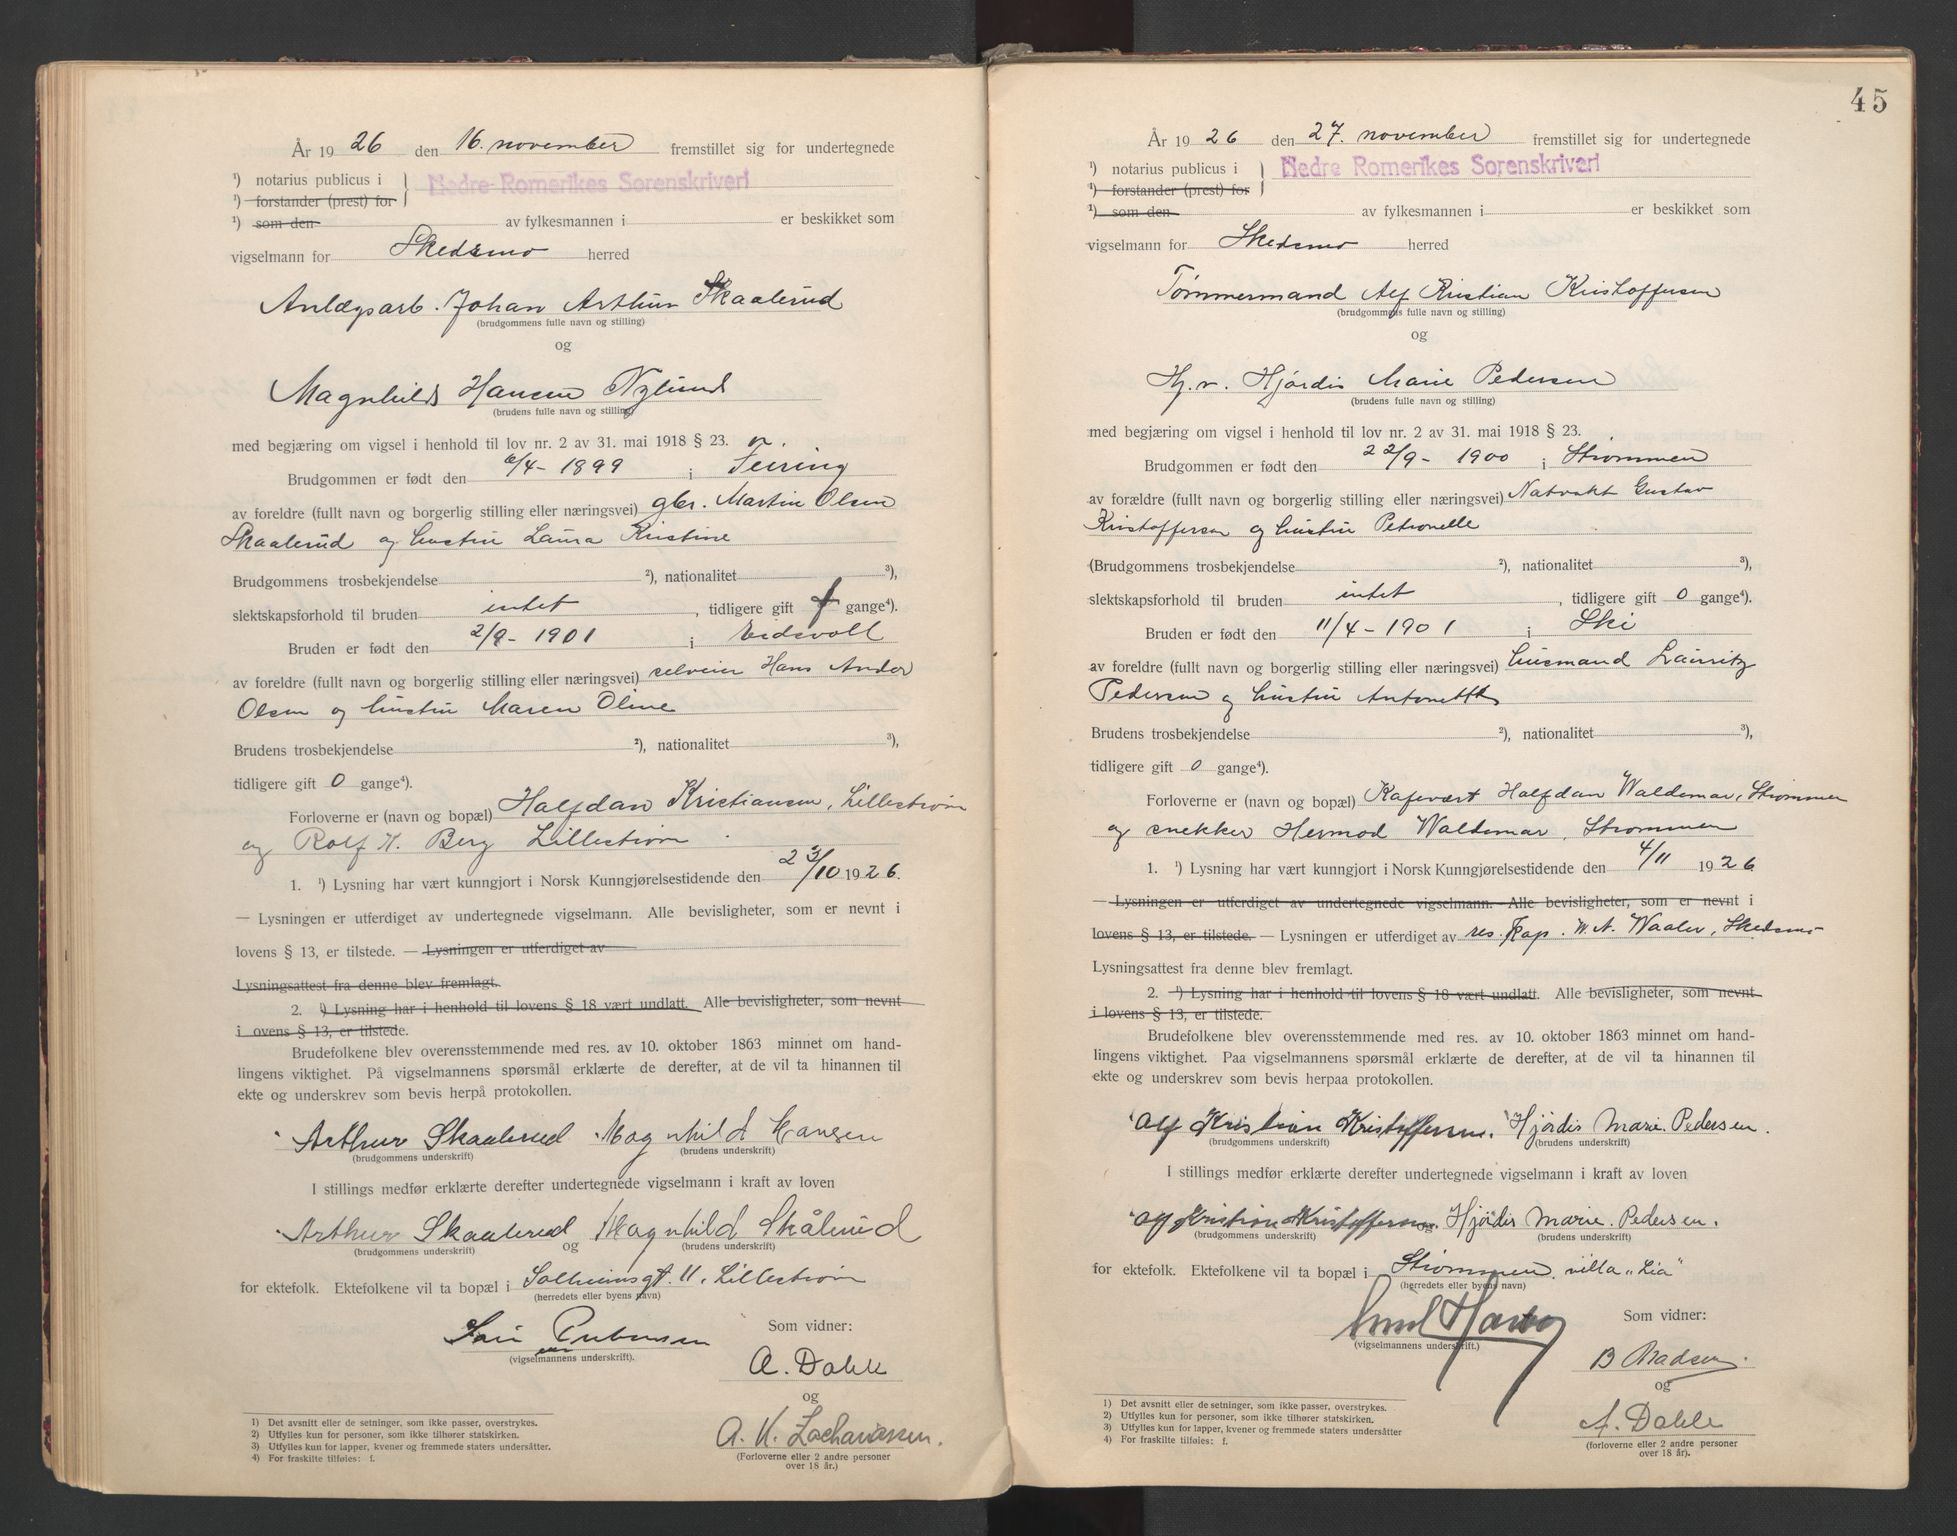 År 1926 den 16. november fremstillet sig for undertegnede
¹) notarius publicus i Nedre Romerikes Sorenskriveri
¹) forstander (prest) for
¹) som den av fylkesmannen i er beskikket som
vigselmann for Skedsmo herred
Anlægsarb. Johan Arthur Skaalerud
(brudgommens fulle navn og stilling)
og
Magnhild Hansen Nylund
(brudens fulle navn og stilling)
med begjæring om vigsel i henhold til lov nr. 2 av 31. mai 1918 § 23.
Brudgommen er født den 6/4 - 1899 i Feiring
av foreldre (fullt navn og borgerlig stilling eller næringsvei) gbr. Martin Olsen
Skaalerud og hustru Laura Kristine
Brudgommens trosbekjendelse ²), nationalitet ³),
slektskapsforhold til bruden intet, tidligere gift gange⁴).
Bruden er født den 2/9 - 1901 i Eidsvoll
av foreldre (fullt navn og borgerlig stilling eller næringsvei) selveier Hans Andor
Olsen og hustru Maren Oline
Brudens trosbekjendelse ²), nationalitet ³),
tidligere gift 0 gange⁴).
Forloverne er (navn og bopæl) Halfdan Kristiansen, Lillestrøm
og Rolf H. Berg Lillestrøm
1. ¹) Lysning har vært kunngjort i Norsk Kunngjørelsestidende den 23/10 1926.
— Lysningen er utferdiget av undertegnede vigselmann. Alle bevisligheter, som er nevnt i
lovens § 13, er tilstede. — Lysningen er utferdiget av
Lysningsattest fra denne blev fremlagt.
2. ¹) Lysning har i henhold til lovens § 18 vært undlatt. Alle bevisligheter, som nevnt
i lovens § 13, er tilstede.
Brudefolkene blev overensstemmende med res. av 10. oktober 1863 minnet om hand-
lingens viktighet. På vigselmannens spørsmål erklærte de derefter, at de vil ta hinannen til
ekte og underskrev som bevis herpå protokollen.
Arthur Skaalerud Magnhild Hansen
(brudgommens underskrift) (brudens underskrift)
I stillings medfør erklærte derefter undertegnede vigselmann i kraft av loven
Arthur Skaalerud og Magnhild Skålerud
(brudgommens underskrift) (brudens underskrift)
for ektefolk. Ektefolkene vil ta bopæl i Solheimsgt. 11, Lillestrøm
(herredets eller byens navn)
(vigselmannens underskrift).
Som vidner:
A. Dahle
og
A. K. Zachariassen.
(Forloverne eller 2 andre personer
over 18 år.)
1) Det avsnitt eller de setninger, som ikke passer, overstrykes.
2) Utfylles kun for personer, som ikke tilhører statskirken.
3) Utfylles kun for lapper, kvener og fremmede staters undersåtter.
4) For fraskilte tilføies: f.
45
År 1926 den 27. november fremstillet sig for undertegnede
¹) notarius publicus i Nedre Romerikes Sorenskriveri
¹) forstander (prest) for
¹) som den av fylkesmannen i er beskikket som
vigselmann for Skedsmo herred
Tømmermand Alf Kristian Kristoffersen
(brudgommens fulle navn og stilling)
og
Hj.v. Hjørdis Marie Pedersen
(brudens fulle navn og stilling)
med begjæring om vigsel i henhold til lov nr. 2 av 31. mai 1918 § 23.
Brudgommen er født den 22/9 - 1900 i Strømmen
av forældre (fullt navn og borgerlig stilling eller næringsvei) Natvakt Gustav
Kristoffersen og hustru Petronelle
(Brudgommens trosbekjendelse ²), nationalitet ³),
slektskapsforhold til bruden intet, tidligere gift 0 gange⁴).
Bruden er født den 11/4 - 1901 i Ski
av foreldre (fullt navn og borgerlig stilling eller næringsvei) husmand Lauritz
Pedersen og hustru Antonette
Brudens trosbekjendelse ²), nationalitet ³),
tidligere gift 0 gange⁴).
Forloverne er (navn og bopæl) Kafevært Halfdan Waldemar, Strømmen
og snekker Hermod Waldemar, Strømmen
1. ¹) Lysning har vært kunngjort i Norsk Kunngjørelsestidende den 4/11 1926
— Lysningen er utferdiget av undertegnede vigselmann. Alle bevisligheter, som er nevnt i
lovens § 13, er tilstede. — Lysningen er utferdiget av res. Kap. M. A. Waaler, Skedsmo
Lysningsattest fra denne blev fremlagt.
2. ¹) Lysning har i henhold til lovens § 18 vært undlatt. Alle bevisligheter, som nevnt
i lovens § 13, er tilstede.
Brudefolkene blev overensstemmende med res. av 10. oktober 1863 minnet om hand-
lingens viktighet. Paa vigselmannens spørsmål erklærte de derefter, at de vil ta hinannen til
ekte og underskrev som bevis herpaa protokollen.
Alf Kristian Kristoffersen. Hjørdis Marie. Pedersen.
(brudgommens underskrift) (brudens underskrift)
I stillings medfør erklærte derefter undertegnede vigselmann i kraft av loven
Alf Kristian Kristoffersen og Hjørdis Marie. Pedersen.
(brudgommens underskrift) (brudens underskrift)
for ektefolk. Ektefolkene vil ta bopæl i Strømmen, villa „Lia"
(herredets eller byens navn)
(vigselmannens underskrift.)
Som vidner:
B Madsen.
og
A. Dahle
(forloverne eller 2 andre personer
over 18 år).
1) Det avsnitt eller de setninger, som ikke passer, overstrykes.
2) Utfylles kun for personer, som ikke tilhører statskirken.
3) Utfylles kun for lapper, kvener og fremmede staters undersåtter
4) For fraskilte tilføies: f.